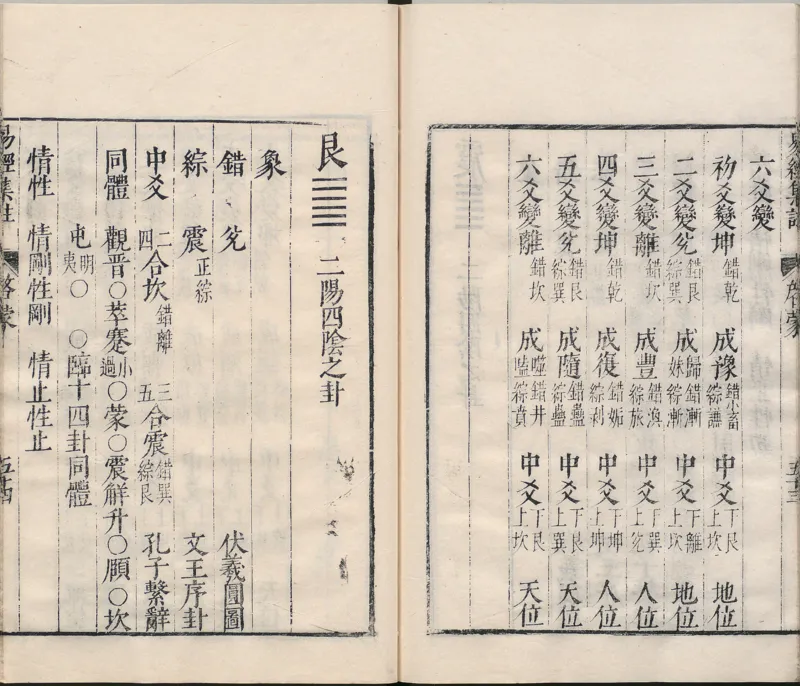 六爻變
初爻變坤 錯乾 成豫 錯小畜 綜謙 中爻 下艮 上坎 地位
二爻變兌 錯艮 綜巽 成歸妹 錯漸 綜漸 中爻 下離 上坎 地位
三爻變離 錯坎 成豐 錯渙 綜旅 中爻 下巽 上兌 人位
四爻變坤 錯乾 成復 錯姤 綜剝 中爻 下坤 上坤 人位
五爻變兌 錯艮 綜巽 成隨 錯蠱 綜蠱 中爻 下艮 上巽 天位
六爻變離 錯坎 成噬嗑 錯井 綜賁 中爻 下艮 上坎 天位
艮 二陽四陰之卦
象
錯 兌 伏羲圓圖
綜 震 正綜 文王序卦
中爻 二四合坎 錯離 三五合震 錯巽 綜艮 孔子繫辭
同體 觀晉○萃蹇小過○蒙○震解升○頤○坎
屯明夷○ ○臨十四卦同體
情性 情剛性剛 情止性止
易經集註 啓蒙 五十四